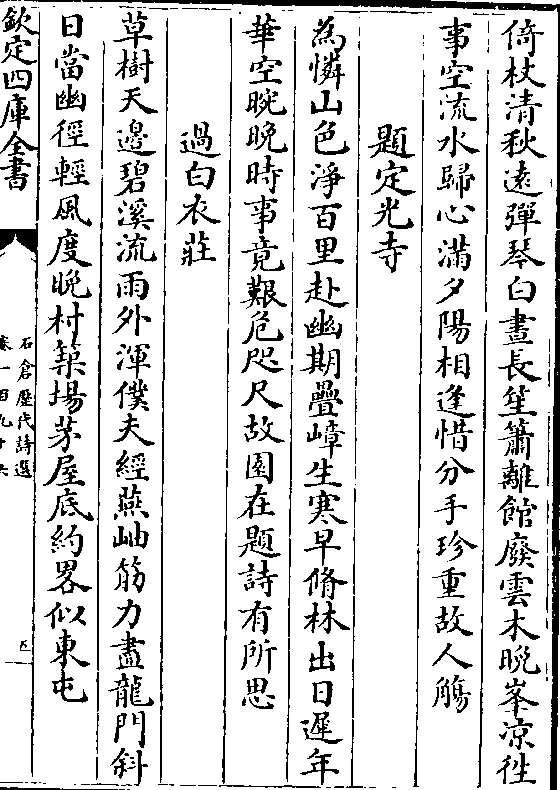 倚杖清秋遠彈琴白晝長笙簫離館廢雲木晩峯凉徃
事空流水歸心滿夕陽相逢惜分手珍重故人觴
題定光寺
為憐山色淨百里赴幽期疊嶂生寒早脩林出日遲年
華空晼晚時事竟艱危咫尺故園在題詩有所思
過白衣莊
草樹天邊碧溪流雨外渾僕夫經燕岫筋力盡龍門斜
日當幽徑輕風度晚村築塲茅屋底約畧似東屯
欽定四庫全書
石倉歷代詩選